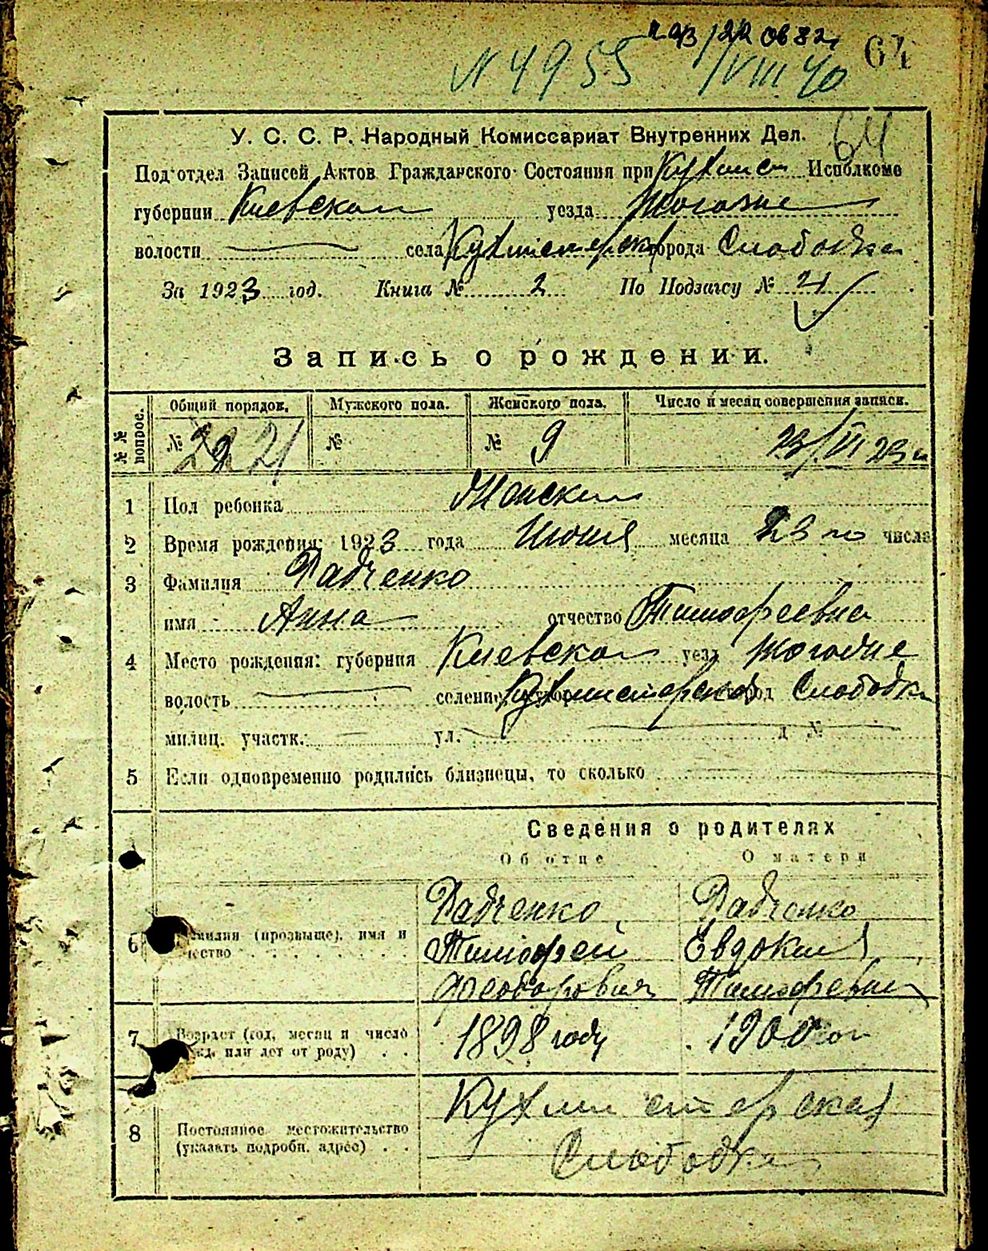 N 4955 VIII 40 64
64
У. С. С. Р. Народный Комиссариат Внутренних Дел.
Подотдел Записей Актов Гражданского Состояния при Кухмис Исполкоме
губернии Киевской уезда
волости села Кухмистерск города Слободка
За 1923 год. Книга № 2 По Подзагсу № 21
Запись о рождении.
№№ вопрос. Общий порядок. Мужского пола. Женского пола. Число и месяц совершения записи.
№ 21 № № 9
1 Пол ребенка Женский
2 Время рождения: 1923 года Июня месяца 23 го числа
3 Фамилия Радченко
имя Анна отчество Тимофеевна
4 Место рождения: губерния Киевская уезд
волость селение, хутор Кухмистерская город Слободка
милиц. участк. ул. д №
5 Если одновременно родились близнецы, то сколько
Сведения о родителях
Об отце О матери
Радченко Радченко
6 Фамилия (прозвыще), имя и Тимофей Евдокия
отчество Феодорович Тимофевна
7 Возраст (год, месяц и число 1898 году 1900
рожд. или лет от роду)
Кухмистерская
8 Постоянное местожительство
(указать подробн. адрес) Слободка